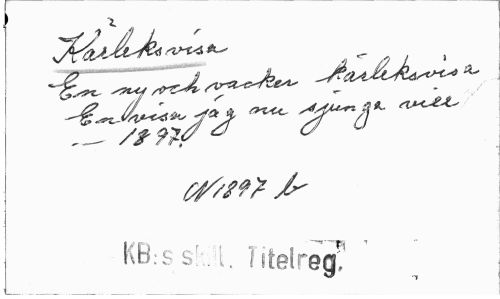 Kärleksvisa
En ny och vacker kärleksvisa
En visa jag nu sjunga vill
— 1897.
N1897 b
KB:s skill. Titelreg.